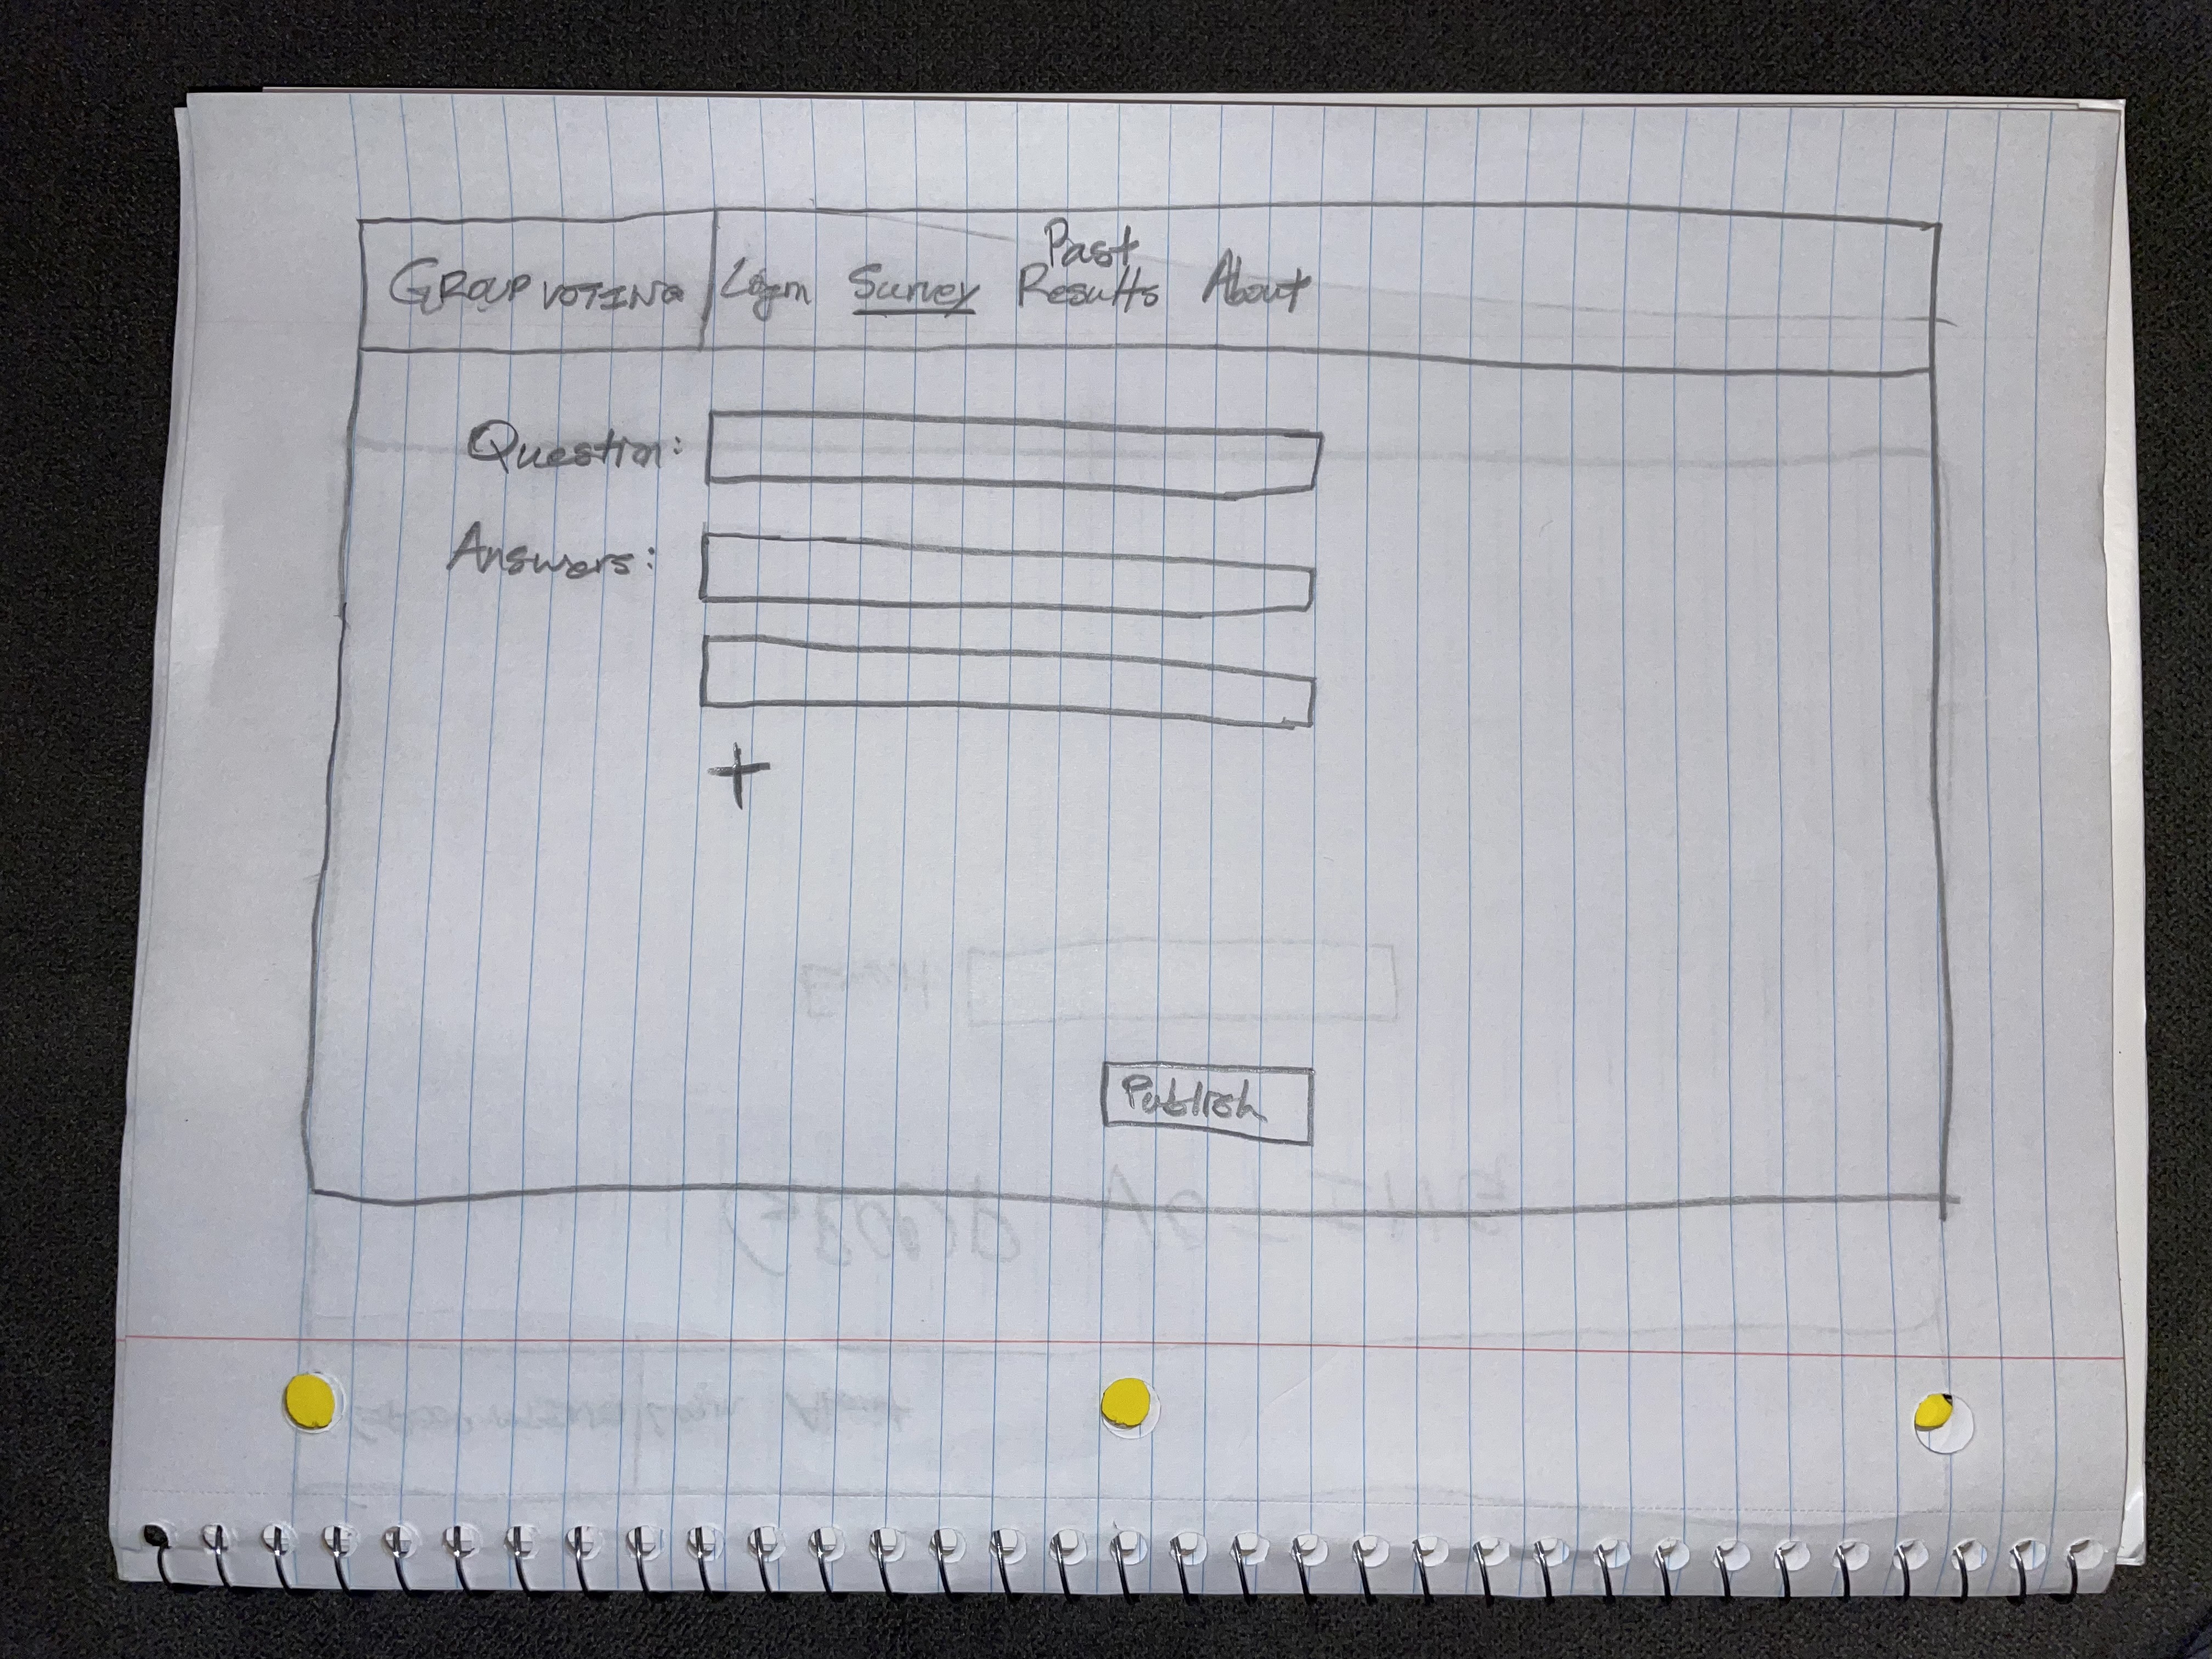 GROUP VOTING
Login Survey Past Results About
Question:
Answers:
+
Publish